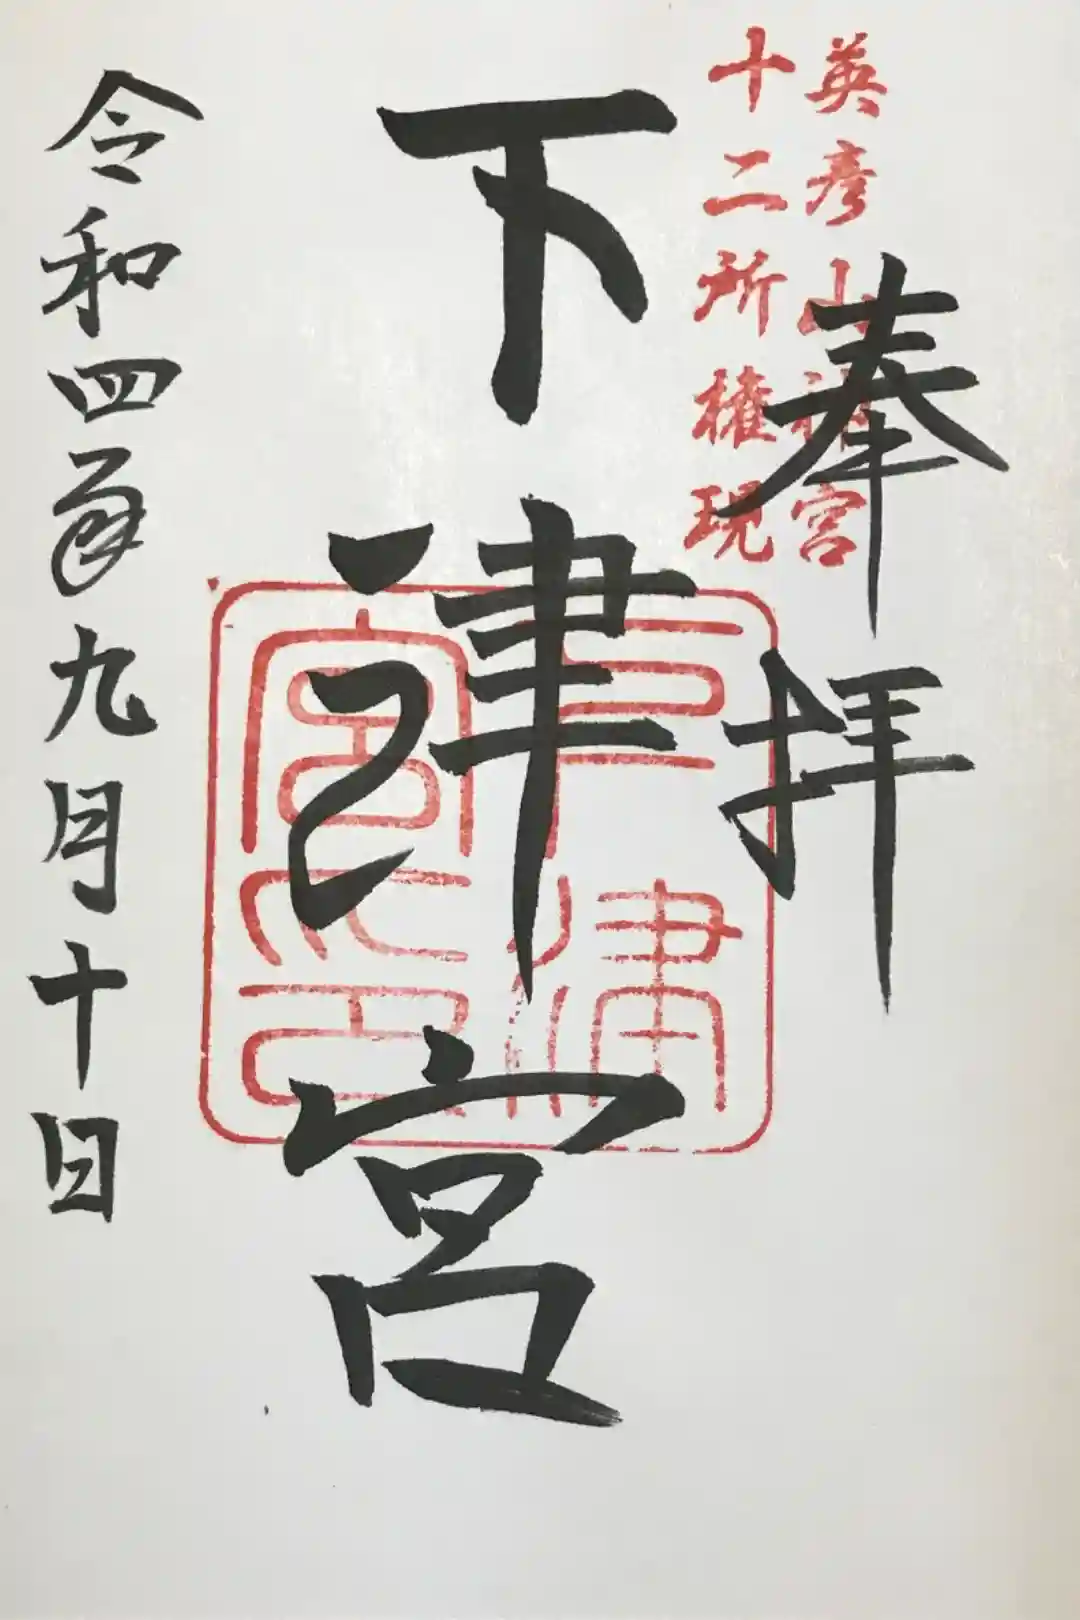 英彦山神宮
十二所権現
奉拝
下津宮
令和四年九月十日